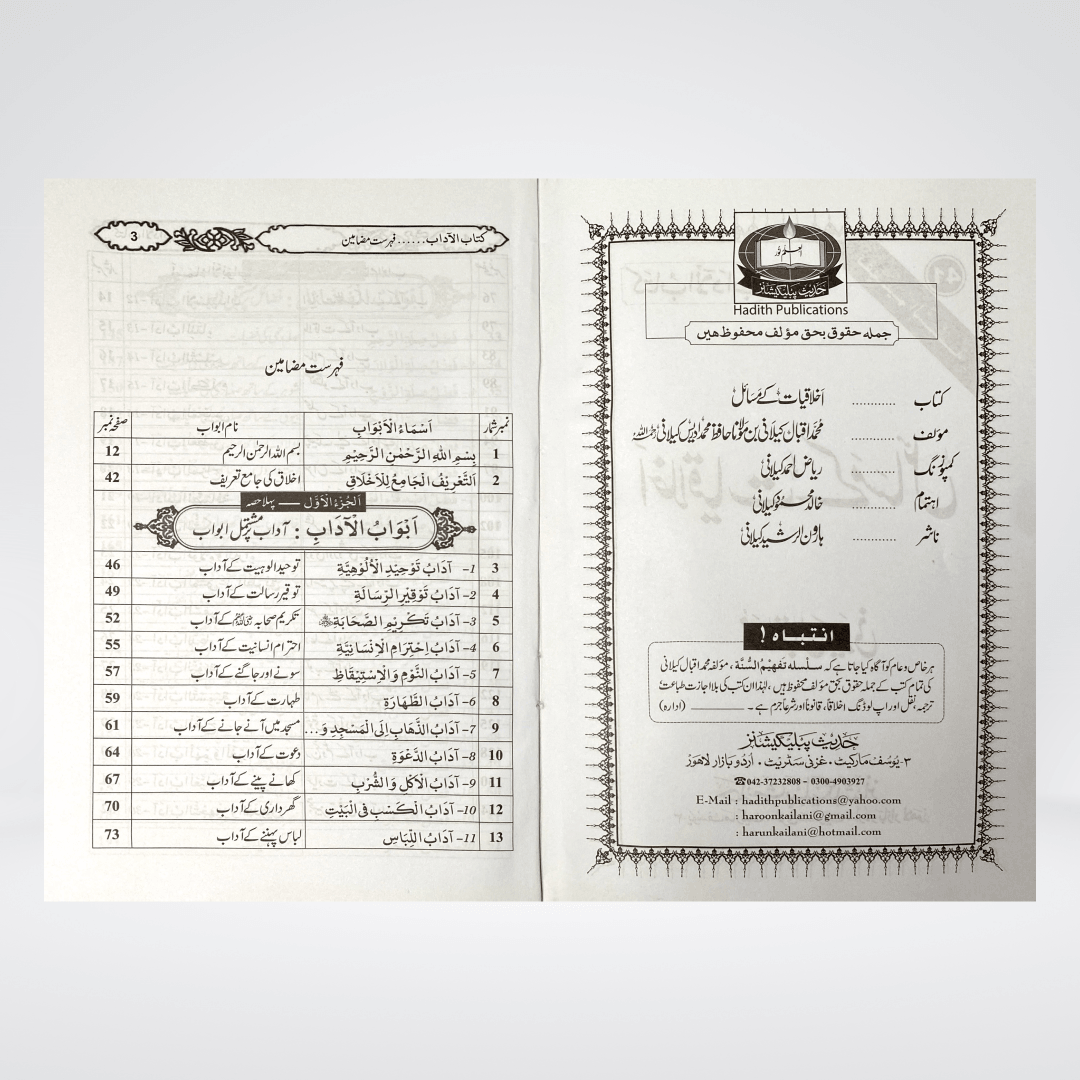 العلم نور
حدیث پبلیکیشنز
Hadith Publications
جملہ حقوق بحق مؤلف محفوظ ھیں
کتاب ............ اَخلاقیات کے مَسَائل
مؤلف ............ محمد اقبال کیلانی بن مولانا حافظ محمد ادریس کیلانی رحمہ اللہ
کمپوزنگ ............ ریاض احمد کیلانی
اہتمام ............ خالد محمود کیلانی
ناشر ............ ہارون الرشید کیلانی
انتباہ !
ہر خاص و عام کو آگاہ کیا جاتا ہے کہ سلسلہ تَفھِیمُ السُّنَّة ، مؤلفہ محمد اقبال کیلانی
کی تمام کتب کے جملہ حقوق بحق مؤلف محفوظ ہیں ، لہٰذا ان کتب کی بلا اجازت طباعت
ترجمہ، نقل اور اپ لوڈنگ اخلاقاً، قانوناً اور شرعاً جرم ہے ۔ ________ (ادارہ)
حدیث پبلیکیشنز
۳-یوسف مارکیٹ، غزنی سٹریٹ، اُردو بازار لاھور
☎042-37232808 – 0300-4903927
E-Mail : hadithpublications@yahoo.com
: haroonkailani@gmail.com
: harunkailani@hotmail.com
کتاب الآداب......فہرست مضامین 3
فہرست مضامین
نمبر شمار اَسْمَاءُ الْاَبْوَابِ نام ابواب صفحہ نمبر
1 بِسْمِ اللهِ الرَّحْمٰنِ الرَّحِيْمِ بسم اللہ الرحمٰن الرحیم 12
2 اَلتَّعْرِيْفُ الْجَامِعُ لِلْاَخْلَاقِ اخلاق کی جامع تعریف 42
اَلْجُزْءُ الْاَوَّلُ — پہلا حصہ
اَبْوَابُ الْآدَابِ : آداب پر مشتمل ابواب
3 1- آدَابُ تَوْحِيْدِ الْاُلُوْهِيَّةِ توحید الوہیت کے آداب 46
4 2- آدَابُ تَوْقِيْرِ الرِّسَالَةِ توقیر رسالت کے آداب 49
5 3- آدَابُ تَكْرِيْمِ الصَّحَابَةِ ﷢ تکریم صحابہ ﷢ کے آداب 52
6 4- آدَابُ اِحْتِرَامِ الْاِنْسَانِيَّةِ احترام انسانیت کے آداب 55
7 5- آدَابُ النَّوْمِ وَ الْاِسْتِيْقَاظِ سونے اور جاگنے کے آداب 57
8 6- آدَابُ الطَّهَارَةِ طہارت کے آداب 59
9 7- آدَابُ الذَّهَابِ اِلَى الْمَسْجِدِ وَ... مسجد میں آنے جانے کے آداب 61
10 8- آدَابُ الدَّعْوَةِ دعوت کے آداب 64
11 9- آدَابُ الْاَكْلِ وَ الشُّرْبِ کھانے پینے کے آداب 67
12 10- آدَابُ الْكَسْبِ فِى الْبَيْتِ گھر داری کے آداب 70
13 11- آدَابُ اللِّبَاسِ لباس پہننے کے آداب 73